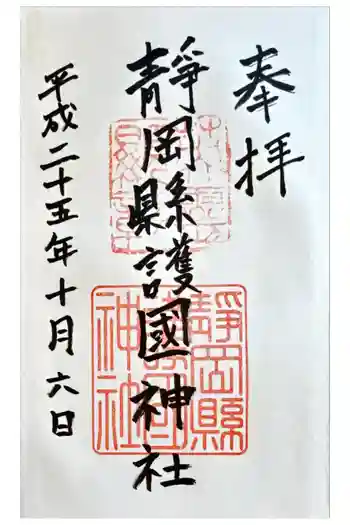 奉拝
靜岡縣護國神社
平成二十五年十月六日
靜岡縣
護國
神社